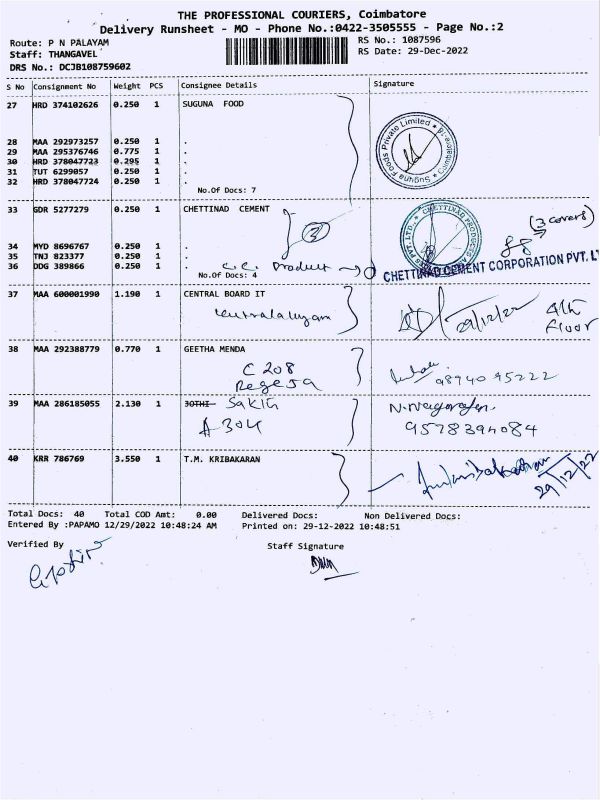 THE PROFESSIONAL COURIERS, Coimbatore
Delivery Runsheet - MO - Phone No.:0422-3505555 - Page No.:2
Route: P N PALAYAM
RS No.: 1087596
Staff: THANGAVEL
RS Date: 29-Dec-2022
DRS No.: DCJB108759602
S No Consignment No Weight PCS Consignee Details Signature
27 HRD 374102626 0.250 1 SUGUNA FOOD
Suguna Foods Private Limited * Coimbatore
28 MAA 292973257 0.250 1 .
29 MAA 295376746 0.775 1 .
30 HRD 378047723 0.295 1 .
31 TUT 6299057 0.250 1 .
32 HRD 378047724 0.250 1 .
No.Of Docs: 7
33 GDR 5277279 0.250 1 CHETTINAD CEMENT
3
(3 covers)
34 MYD 8696767 0.250 1 .
35 TNJ 823377 0.250 1 .
36 DDG 389866 0.250 1 .
C.C. Product
No.Of Docs: 4
CHETTINAD CEMENT CORPORATION PVT. LT
37 MAA 600001990 1.190 1 CENTRAL BOARD IT
29/12/22 4th Floor
38 MAA 292388779 0.770 1 GEETHA MENDA
C 208
98940 95222
39 MAA 286185055 2.130 1 JOTHI Sakthi
A 304
9578394084
40 KRR 786769 3.550 1 T.M. KRIBAKARAN
29/12/22
Total Docs: 40 Total COD Amt: 0.00 Delivered Docs: Non Delivered Docs:
Entered By :PAPAMO 12/29/2022 10:48:24 AM Printed on: 29-12-2022 10:48:51
Verified By
Staff Signature